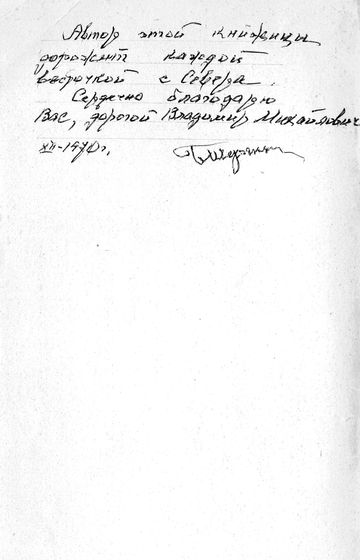 Автор этой книжицы
дорожит каждой
весточкой с Севера.
Сердечно благодарю
Вас, дорогой Владимир Михайлович
XII-1970 г.